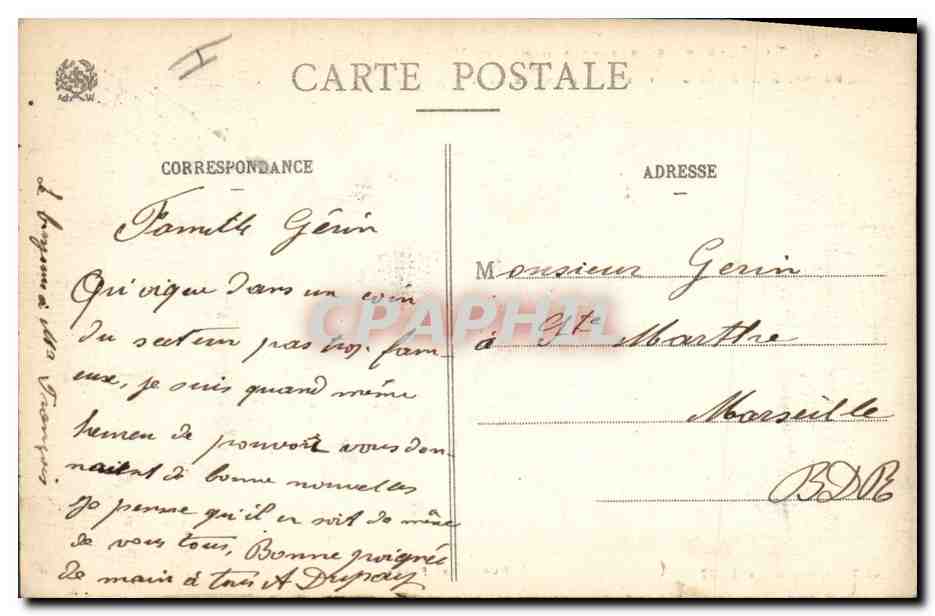 CARTE POSTALE
CORRESPONDANCE
Famille Gérin
Qu'oique dans un coin
du secteur pas trop fam-
eux, je suis quand même
hereu de pouvoir vous don-
de bonne nouvelles
Je pense qu'il en soit de même
de vous tous, Bonne poignée
de main à tous A Dupay
Le bonjour à Mr François
ADRESSE
Monsieur Gerin
à Ste Marthe
Marseille
BDR
CPAPHIL